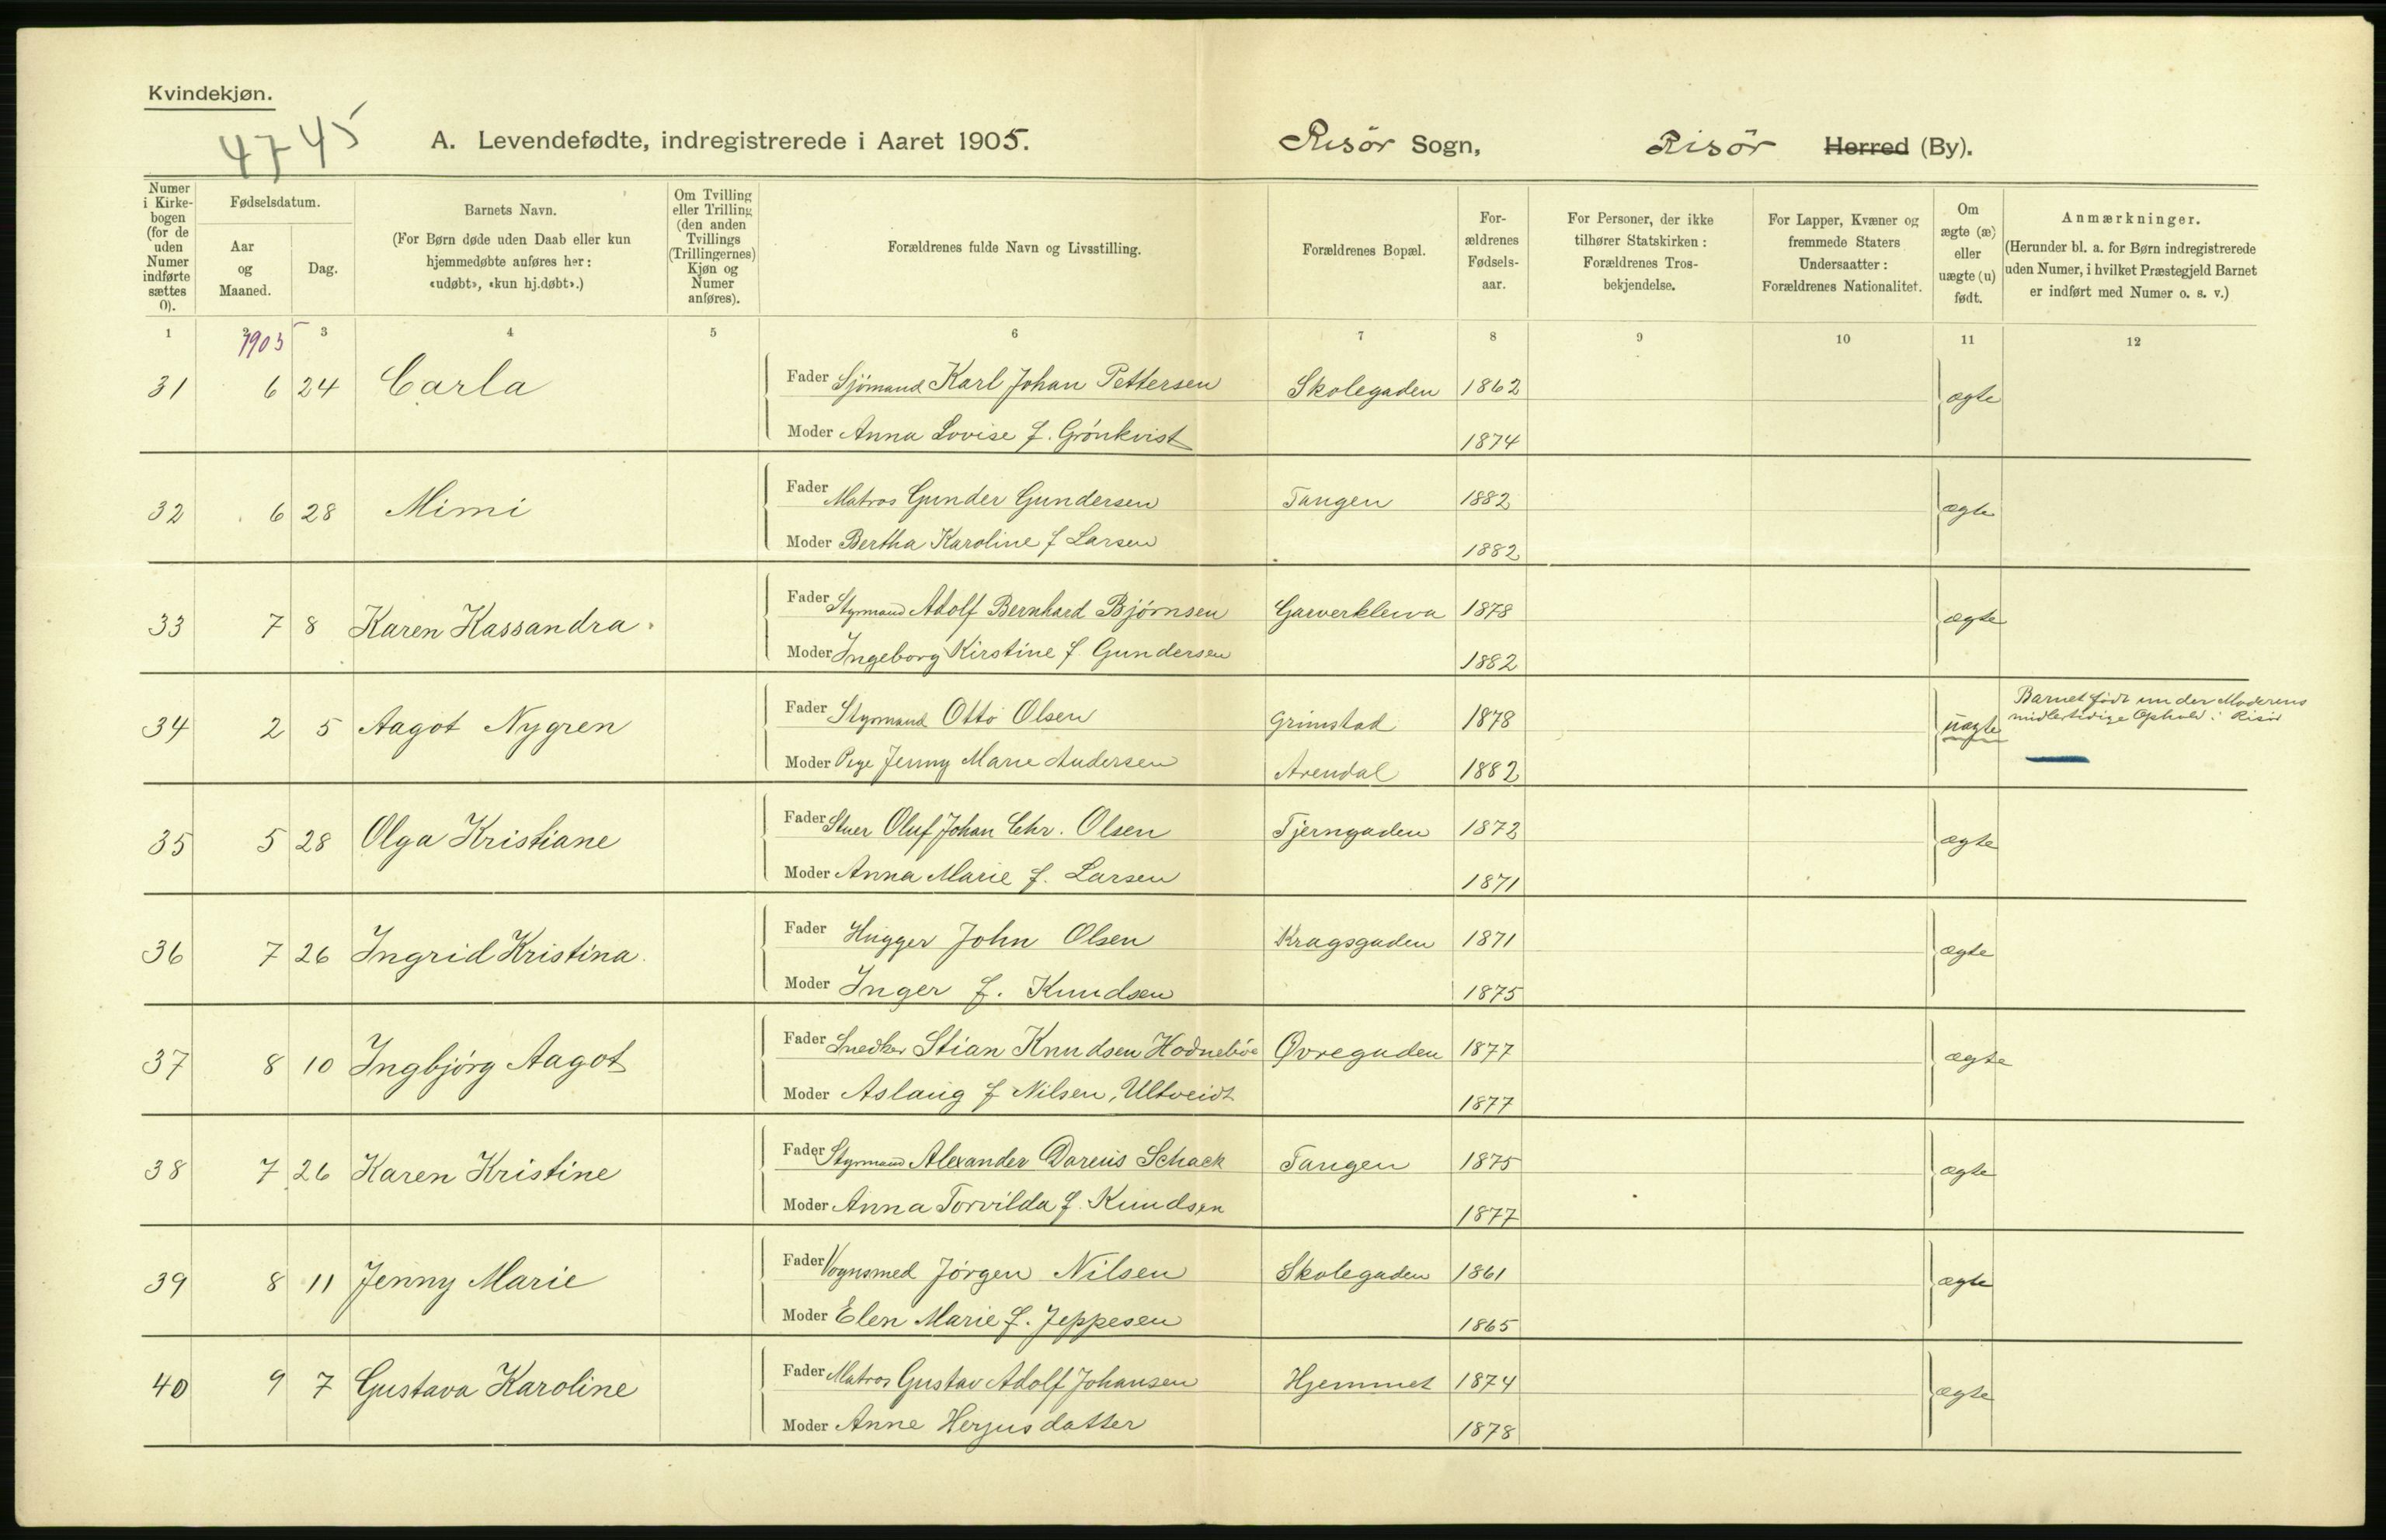 Kvindekjøn.
4745
A. Levendefødte, indregistrerede i Aaret 1905. Risör Sogn, Risör Herred (By).
Numer i Kirke-bogen (for de uden Numer indførte sættes 0).
Fødselsdatum.
Aar og Maaned.
Dag.
Barnets Navn.
(For Børn døde uden Daab eller kun hjemmedøbte anføres her: «udøbt», «kun hj.døbt».)
Om Tvilling eller Trilling (den anden Tvillings (Trillingernes) Kjøn og Numer anføres).
Forældrenes fulde Navn og Livsstilling.
Forældrenes Bopæl.
For-ældrenes Fødsels-aar.
For Personer, der ikke tilhører Statskirken: Forældrenes Tros-bekjendelse.
For Lapper, Kvæner og fremmede Staters Undersaatter: Forældrenes Nationalitet.
Om ægte (æ) eller uægte (u) født.
Anmærkninger.
(Herunder bl. a. for Børn indregistrerede uden Numer, i hvilket Præstegjeld Barnet er indført med Numer o. s. v.)
1 2 3 4 5 6 7 8 9 10 11 12
1905
31 6 24 Carla Fader Sjömand Karl Johan Pettersen Skolegaden 1862 ægte
Moder Anna Lovise f. Grönkvist 1874
32 6 28 Mimi Fader Matros Gunder Gundersen Tangen 1882 ægte
Moder Bertha Karoline f Larsen 1882
33 7 8 Karen Kassandra. Fader Styrmand Adolf Bernhard Bjørnsen Garverkleiva 1878 ægte
Moder Ingeborg Kirstine f. Gundersen 1882
34 2 5 Aagot Nygren Fader Styrmand Otto Olsen Grimstad 1878 uægte Barnet födt under Moderens
midlertidige Ophold i Risör
Moder Pige Jenny Marie Andersen Arendal 1882
35 5 28 Olga Kristiane Fader Stuer Oluf Johan Chr. Olsen Tjerngaden 1872 ægte
Moder Anna Marie f. Larsen 1871
36 7 26 Ingrid Kristina. Fader Hugger John Olsen Kragsgaden 1871 ægte
Moder Inger f. Knudsen 1875
37 8 10 Ingbjörg Aagot Fader Snedker Stian Knudsen Hodneböe Øvregaden 1877 ægte
Moder Aslaug f Nilsen, Ultveidt 1877
38 7 26 Karen Kristine Fader Styrmand Alexander Dareus Schack Tangen 1875 ægte
Moder Anna Torvilda f. Knudsen 1877
39 8 11 Jenny Marie Fader Vognsmed Jörgen Nilsen Skolegaden 1861 ægte
Moder Elen Marie f. Jeppesen 1865
40 9 7 Gustava Karoline Fader Matros Gustav Adolf Johansen Hjemmet 1874 ægte
Moder Anne Herjusdatter 1878